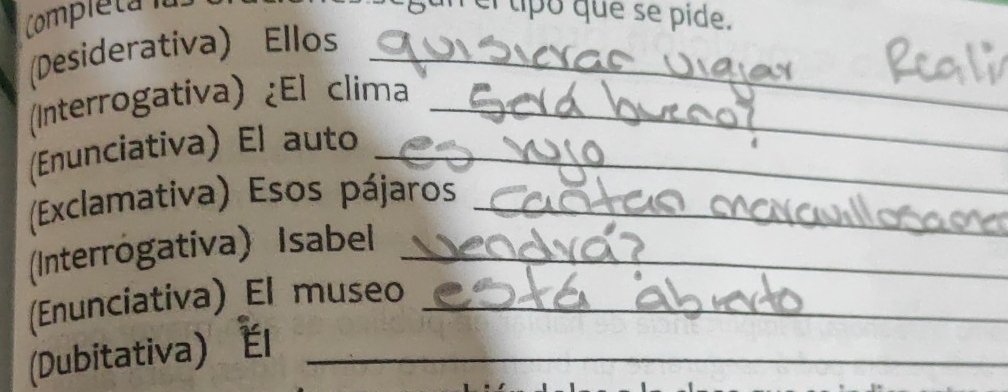 completa las oraciones según el tipo que se pide.
(Desiderativa) Ellos quisieran viajar
(Interrogativa) ¿El clima será bueno?
(Enunciativa) El auto es rojo
(Exclamativa) Esos pájaros cantan
(Interrogativa) Isabel vendrá?
(Enunciativa) El museo está abierto
(Dubitativa) Él